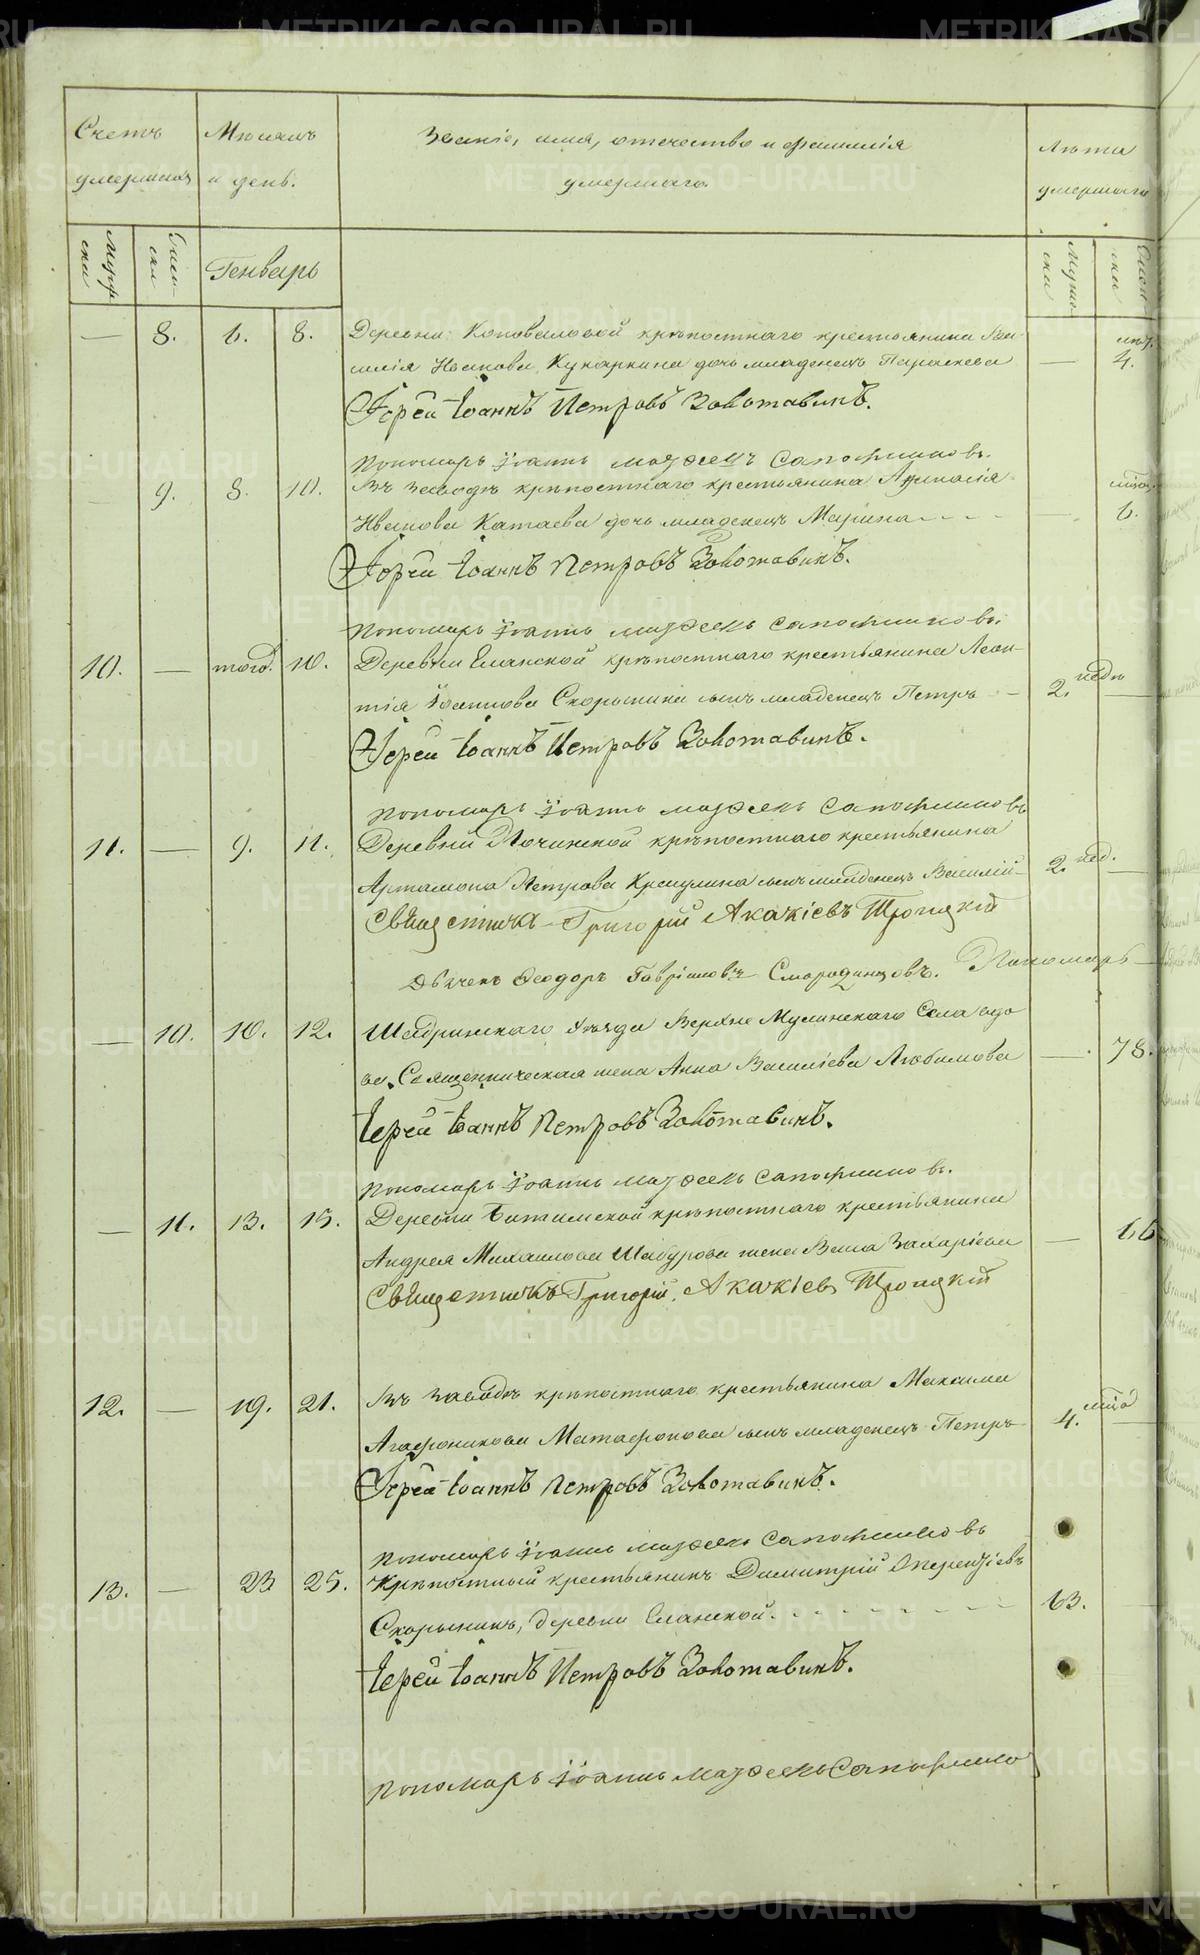 Счетъ умершихъ
Мѣсяцъ и день.
Званіе, имя, отечество и фамилія умершаго.
Лѣта умершаго
Муже-ска
Женс-ка
Генварь
Муже-ска
Женс-ка
— 8. 6. 8. Деревни Коноваловой крѣпостнаго крестьянина Ва-
силія Иванова Кукаркина дочь младенецъ Параскева — мѣс. 4.
Іерей Іоаннъ Петровъ Золотавинъ.
Пономарь Іоаннъ Сапожниковъ.
— 9. 8. 10. Въ заводѣ крѣпостнаго крестьянина
Иванова Катаева дочь младенецъ Марина — мѣсц. 6.
Іерей Іоаннъ Петровъ Золотавинъ.
Пономарь Іоаннъ Сапожниковъ.
10. — того 10. Деревни Еланской крѣпостнаго крестьянина Леон-
тія Іоаннова Скорынина сынъ младенецъ Петръ — 2. недѣ —
Іерей Іоаннъ Петровъ Золотавинъ.
Пономарь Іоаннъ Сапожниковъ
11. — 9. 11. Деревни Починской крѣпостнаго крестьянина
Артамона Петрова сынъ младенецъ Василій — 2. нед. —
Священникъ Григорій Акакіевъ Троицкій
Дьячекъ Ѳеодоръ Гавріиловъ Смородинцовъ. Пономарь
— 10. 10. 12. Шадринскаго уѣзда Верхне Села вдо-
вая Священническая жена Анна Василіева Любимова — 78.
Іерей Іоаннъ Петровъ Золотавинъ.
Пономарь Іоаннъ Сапожниковъ.
— 11. 13. 15. Деревни Битимской крѣпостнаго крестьянина
Андрея Михаилова Шабурова жена Васса Захаріева — 66
Священникъ Григорій Акакіевъ Троицкій
12. — 19. 21. Въ заводѣ крѣпостнаго крестьянина Максима
Агафоникова Матафонова сынъ младенецъ Петръ 4. мѣсц —
Іерей Іоаннъ Петровъ Золотавинъ.
Пономарь Іоаннъ Сапожниковъ
13. — 23 25. Крѣпостный крестьянинъ Димитрій
Скорынинъ, деревни Еланской. 63.
Іерей Іоаннъ Петровъ Золотавинъ.
Пономарь Іоаннъ
METRIKI.GASO-URAL.RU